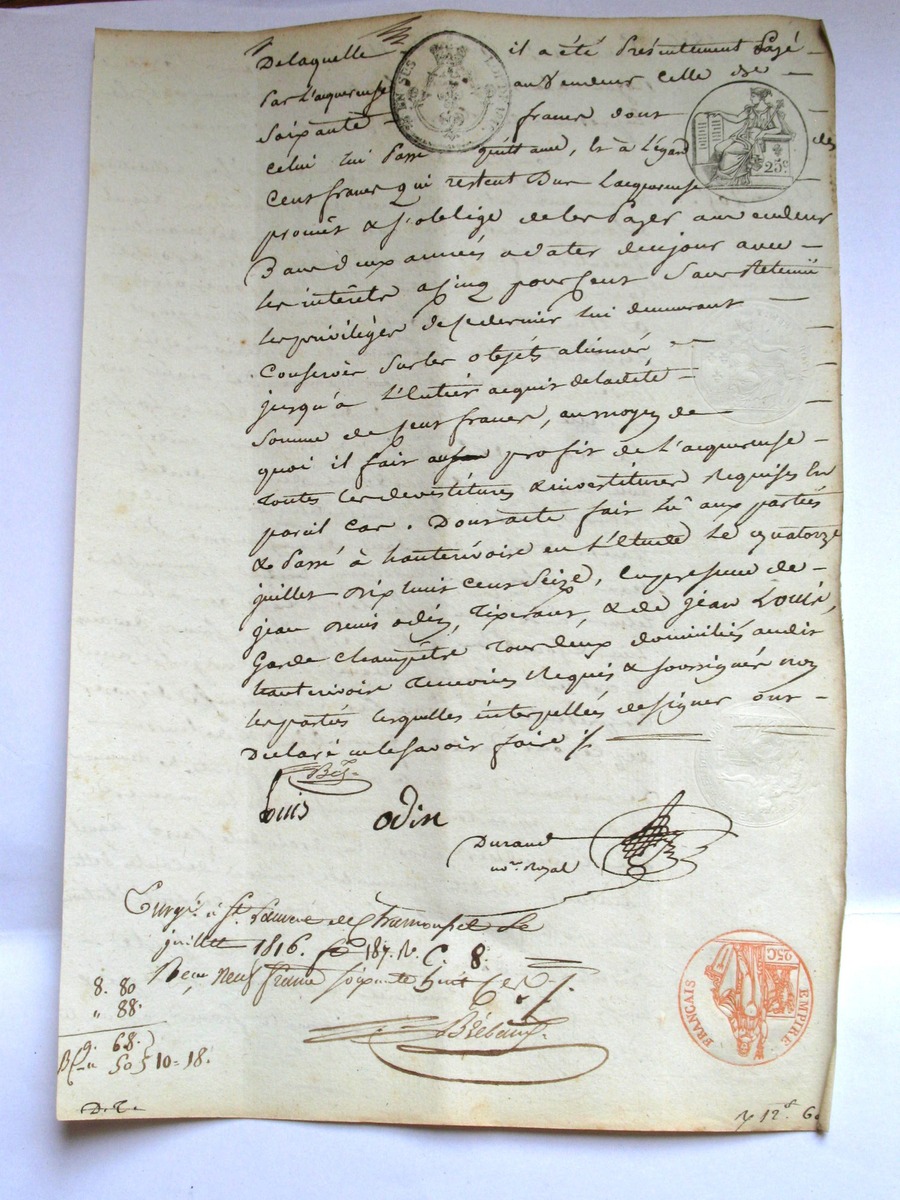 Delaquelle il a été Présentement Payé
Par L'acquereuse au Vendeur celle de
Soixante francs dont
Celui lui Passe quittance, Et à L'égard des
Cent francs qui restent Dus Lacquereuse
promêt & s'oblige de les Payer au vendeur
Dans deux années a dater de ce jour avec
les intérêts a cinq pour Cent Sans Retenue
les privilèges de ce dernier lui demeurant
Conservés Sur les objets alienés
jusqu'à l'Entier acquit de ladite
Somme de Cent francs, au moyen de
quoi il fait au profit de L'acquereuse
Toutes les devestitures & investitures Requises En
pareil Cas. Dont acte fait lû aux parties
& Passé à hauterivoire en L'Etude Le quatorze
juillet dix huit Cent Seize, En presence de
jean odin, Tixerand, & de jean Louis,
Garde Champêtre Tous deux domiciliés audit
hauterivoire Temoins Requis & soussignés non
les parties lesquelles interpellées de signer ont
Declaré ne le savoir faire
Louis odin
Durand
no.re Royal
Enrgé. à St. Laurent de Chamousset Le
juillet 1816. fo 187. Ro. C. 8
Reçu neuf francs soixante huit Ces.
8. 80
" 88.
9. 68.
10=18.
EN SUS
25c.
EMPIRE FRANÇAIS
25C